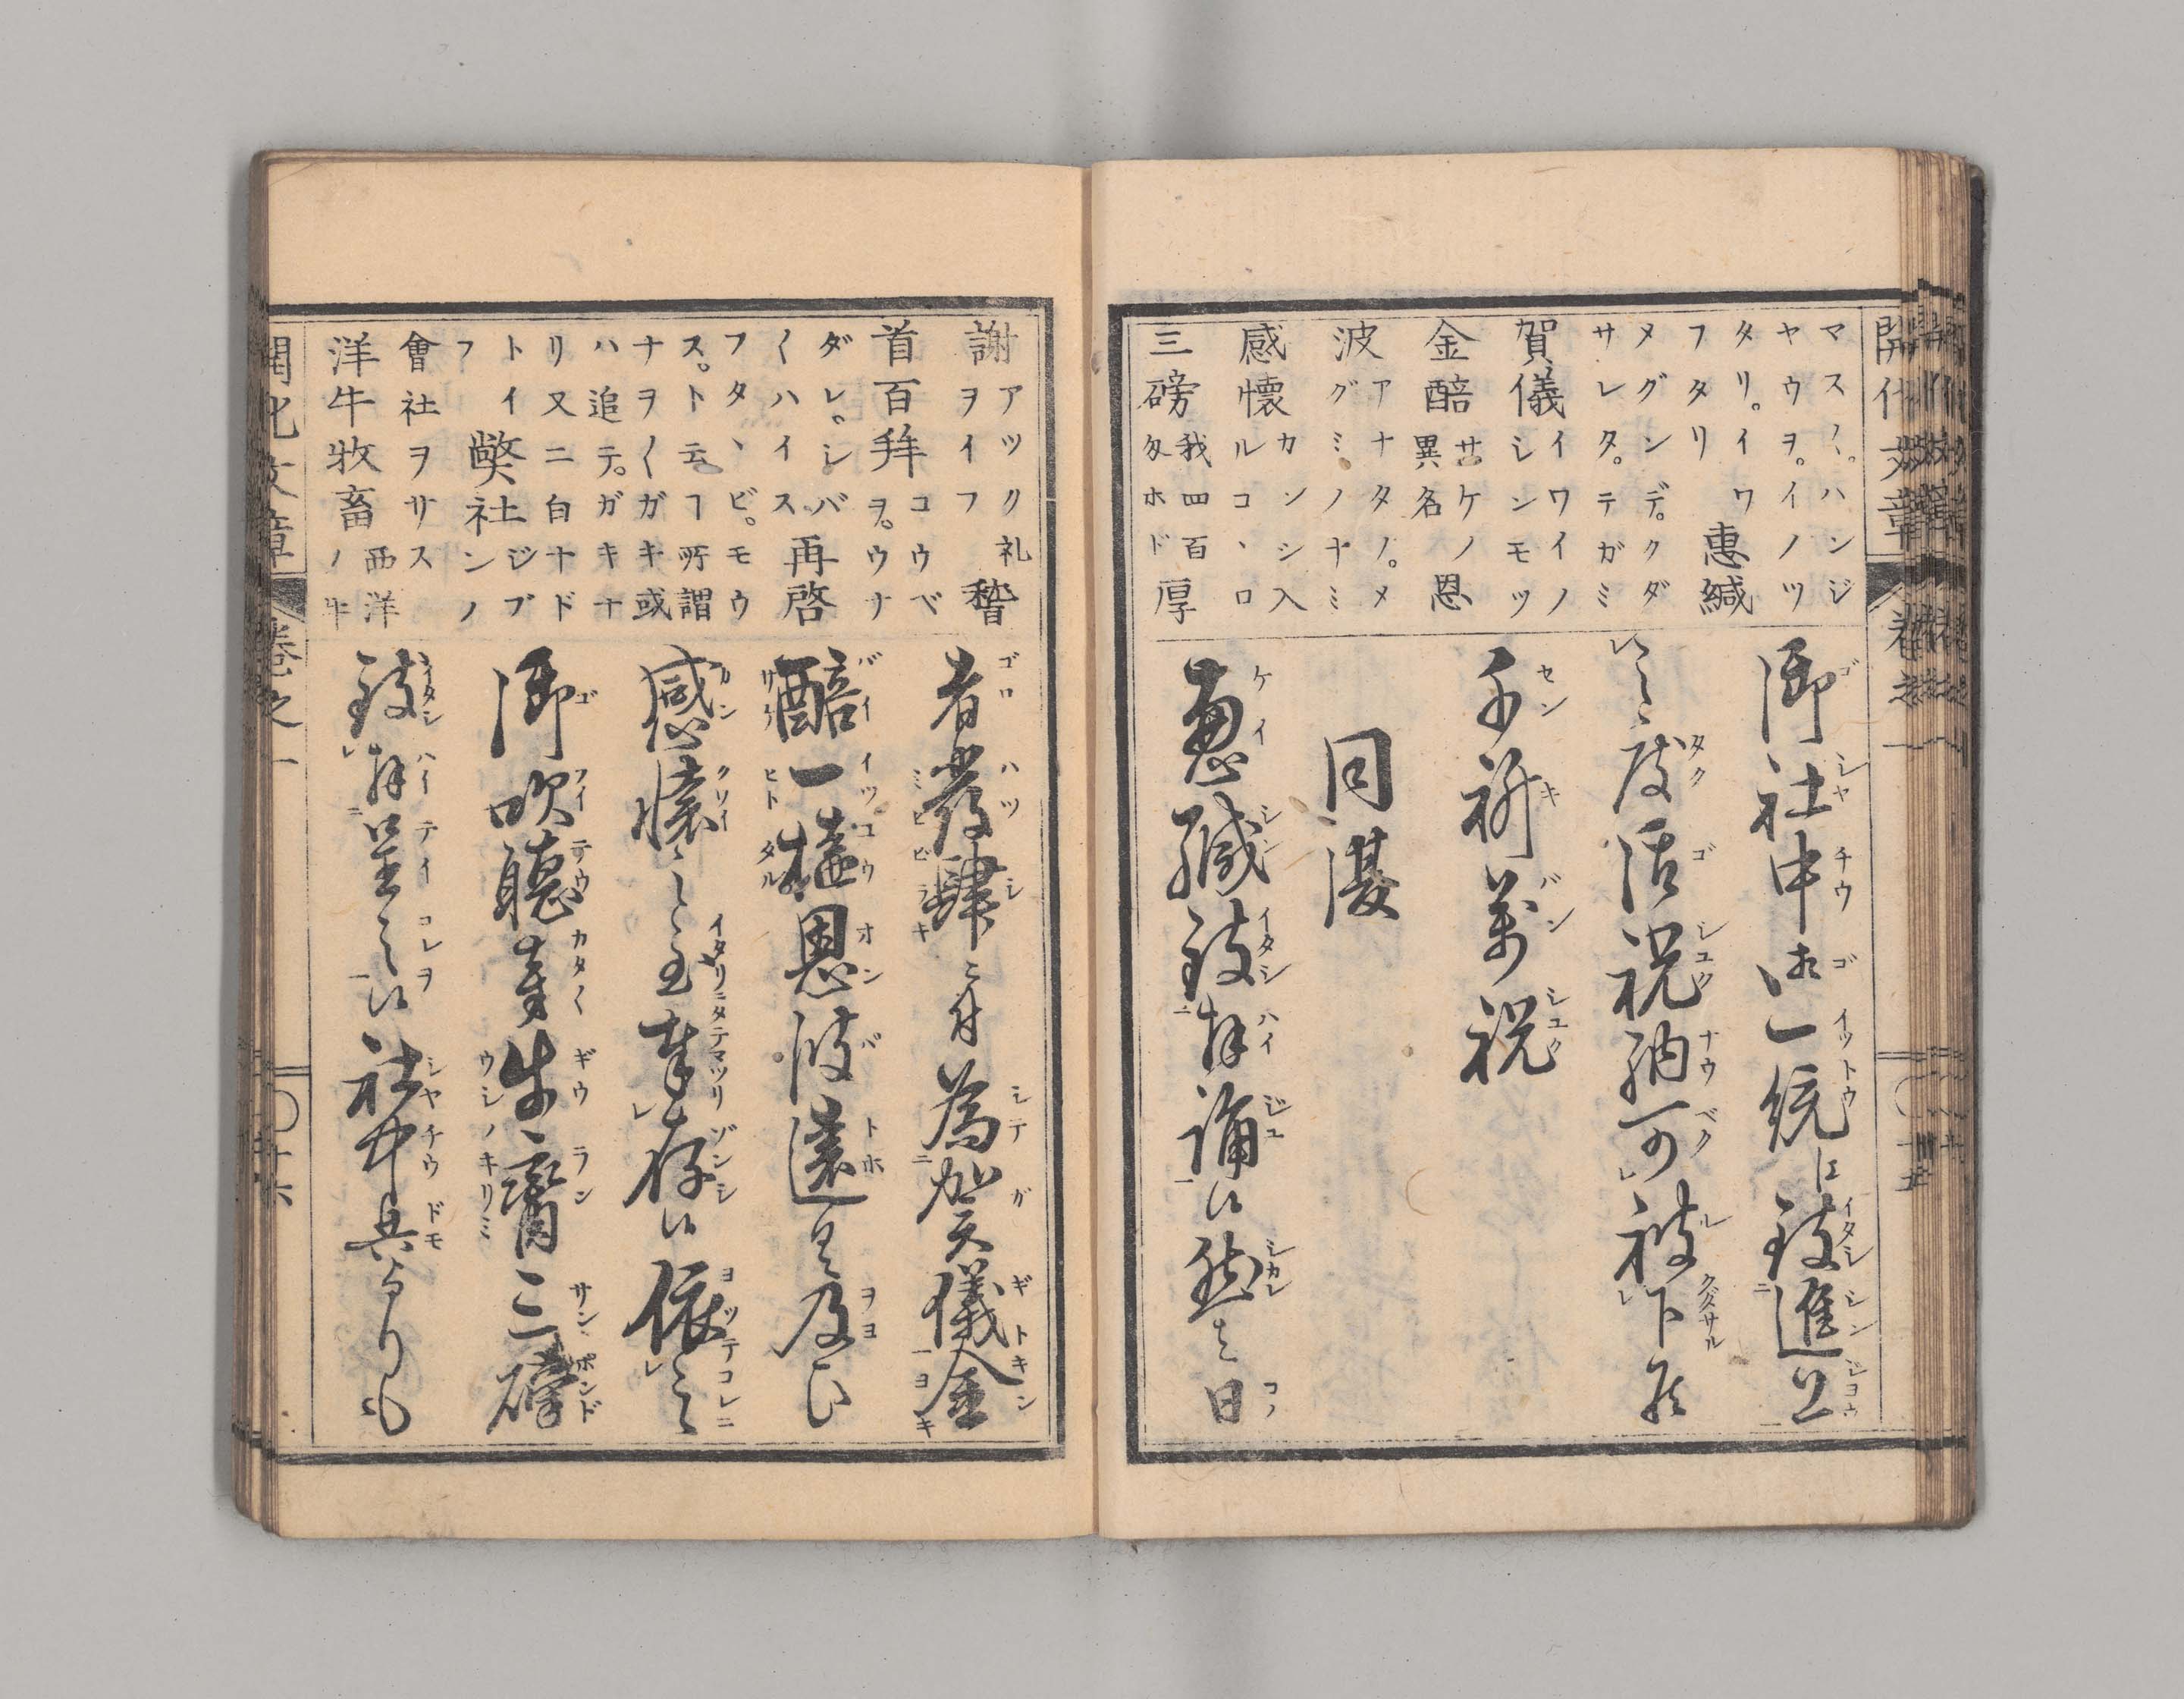 開化文章
巻之一
マス〱。ハンジ
ヤウヲ。イノツ
タリ。イワ
フタリ 惠緘
メグンデ。クダ
サレタ。テガミ
賀儀 イワイノ
シンモツ
金醅 サケノ
異名
恩
波 アナタノ。メ
グミノナミ
感懷 カンシ入
ルコヽロ
三磅 我四百
匁ホド
厚
御社中御一統江致進上
候之度活祝納可被下候
千祈萬祝
同復
惠緘致拜誦候然者日
謝 アツク礼
ヲイフ
稽
首百拜 コウベ
ヲ。ウナ
ダレ。シバ
〱ハイス
再啓
フタヽビ。モウ
ス。ト云フ所謂
ナヲ〱ガキ或
ハ追テ。ガキナ
リ又ニ自ナド
トイフ
弊社 ジブンノ
會社ヲサス
洋牛牧畜 西洋
ノ牛
者發肆ニ付為賀儀金
醅一樽恩波遠ク及ひ
感懷之至奉存候依之
御吹聽旁牛臠三磅
致拜呈之候社中共よりも
開化文章
巻之一